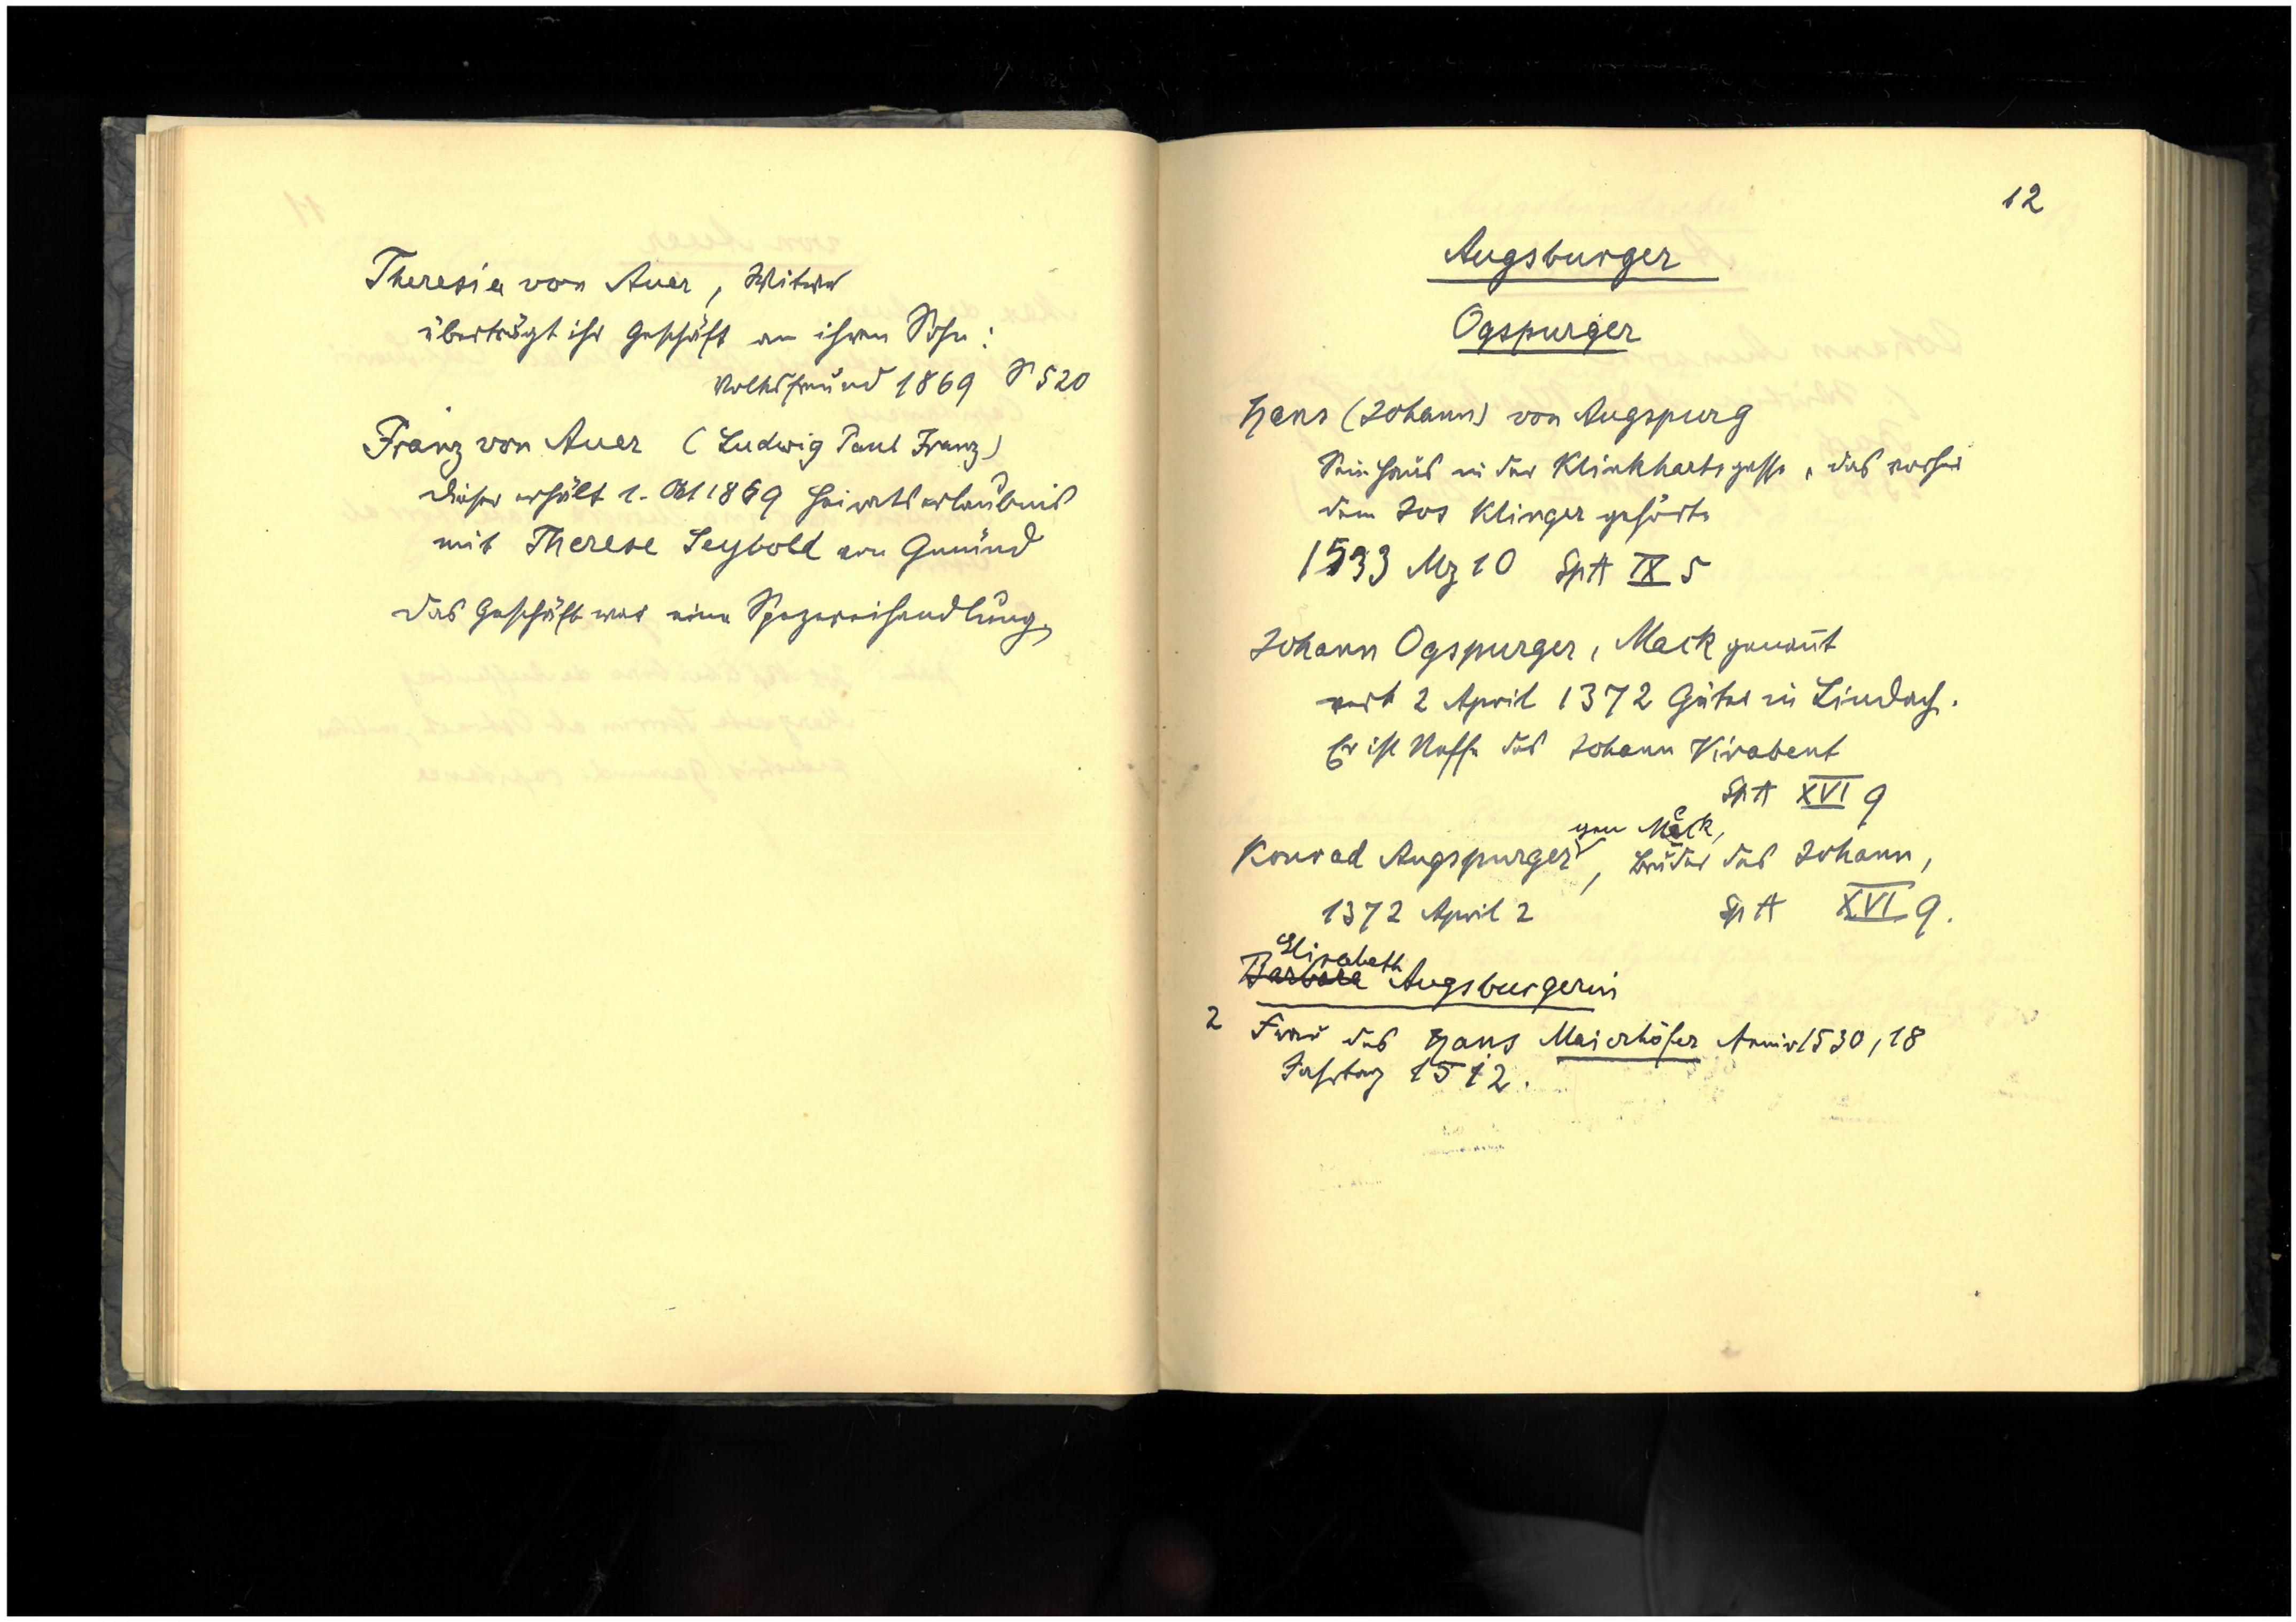 Theresia von Auer, Witwe
überträgt ihr Geschäft an ihren Sohn:
Volksfreund 1869 S 520
Franz von Auer (Ludwig Paul Franz)
Dieser erhält 1. Okt 1869 Heiratserlaubnis
mit Therese Seybold von Gmünd
Das Geschäft war eine Spezereihandlung.
12
Augsburger
Ogspurger
Hans (Johann) von Augspurg
Sein Haus in der Klinkhartsgasse, das vorher
dem Jos Klinger gehörte
1533 Mz 10 SpA IX 5
Johann Ogspurger, Mack genañt
verk 2 April 1372 Güter in Lindach.
Er ist Neffe des Johann Kirabent
SpA XVI 9
gen Mack,
Konrad Augspurger, Bruder des Johann,
1372 April 2 SpA XVI 9.
Elisabeth
Barbara Augsburgerin
2 Frau des Hans Maierhöfer Anniv 1530, 18
Jahrtag 1512.